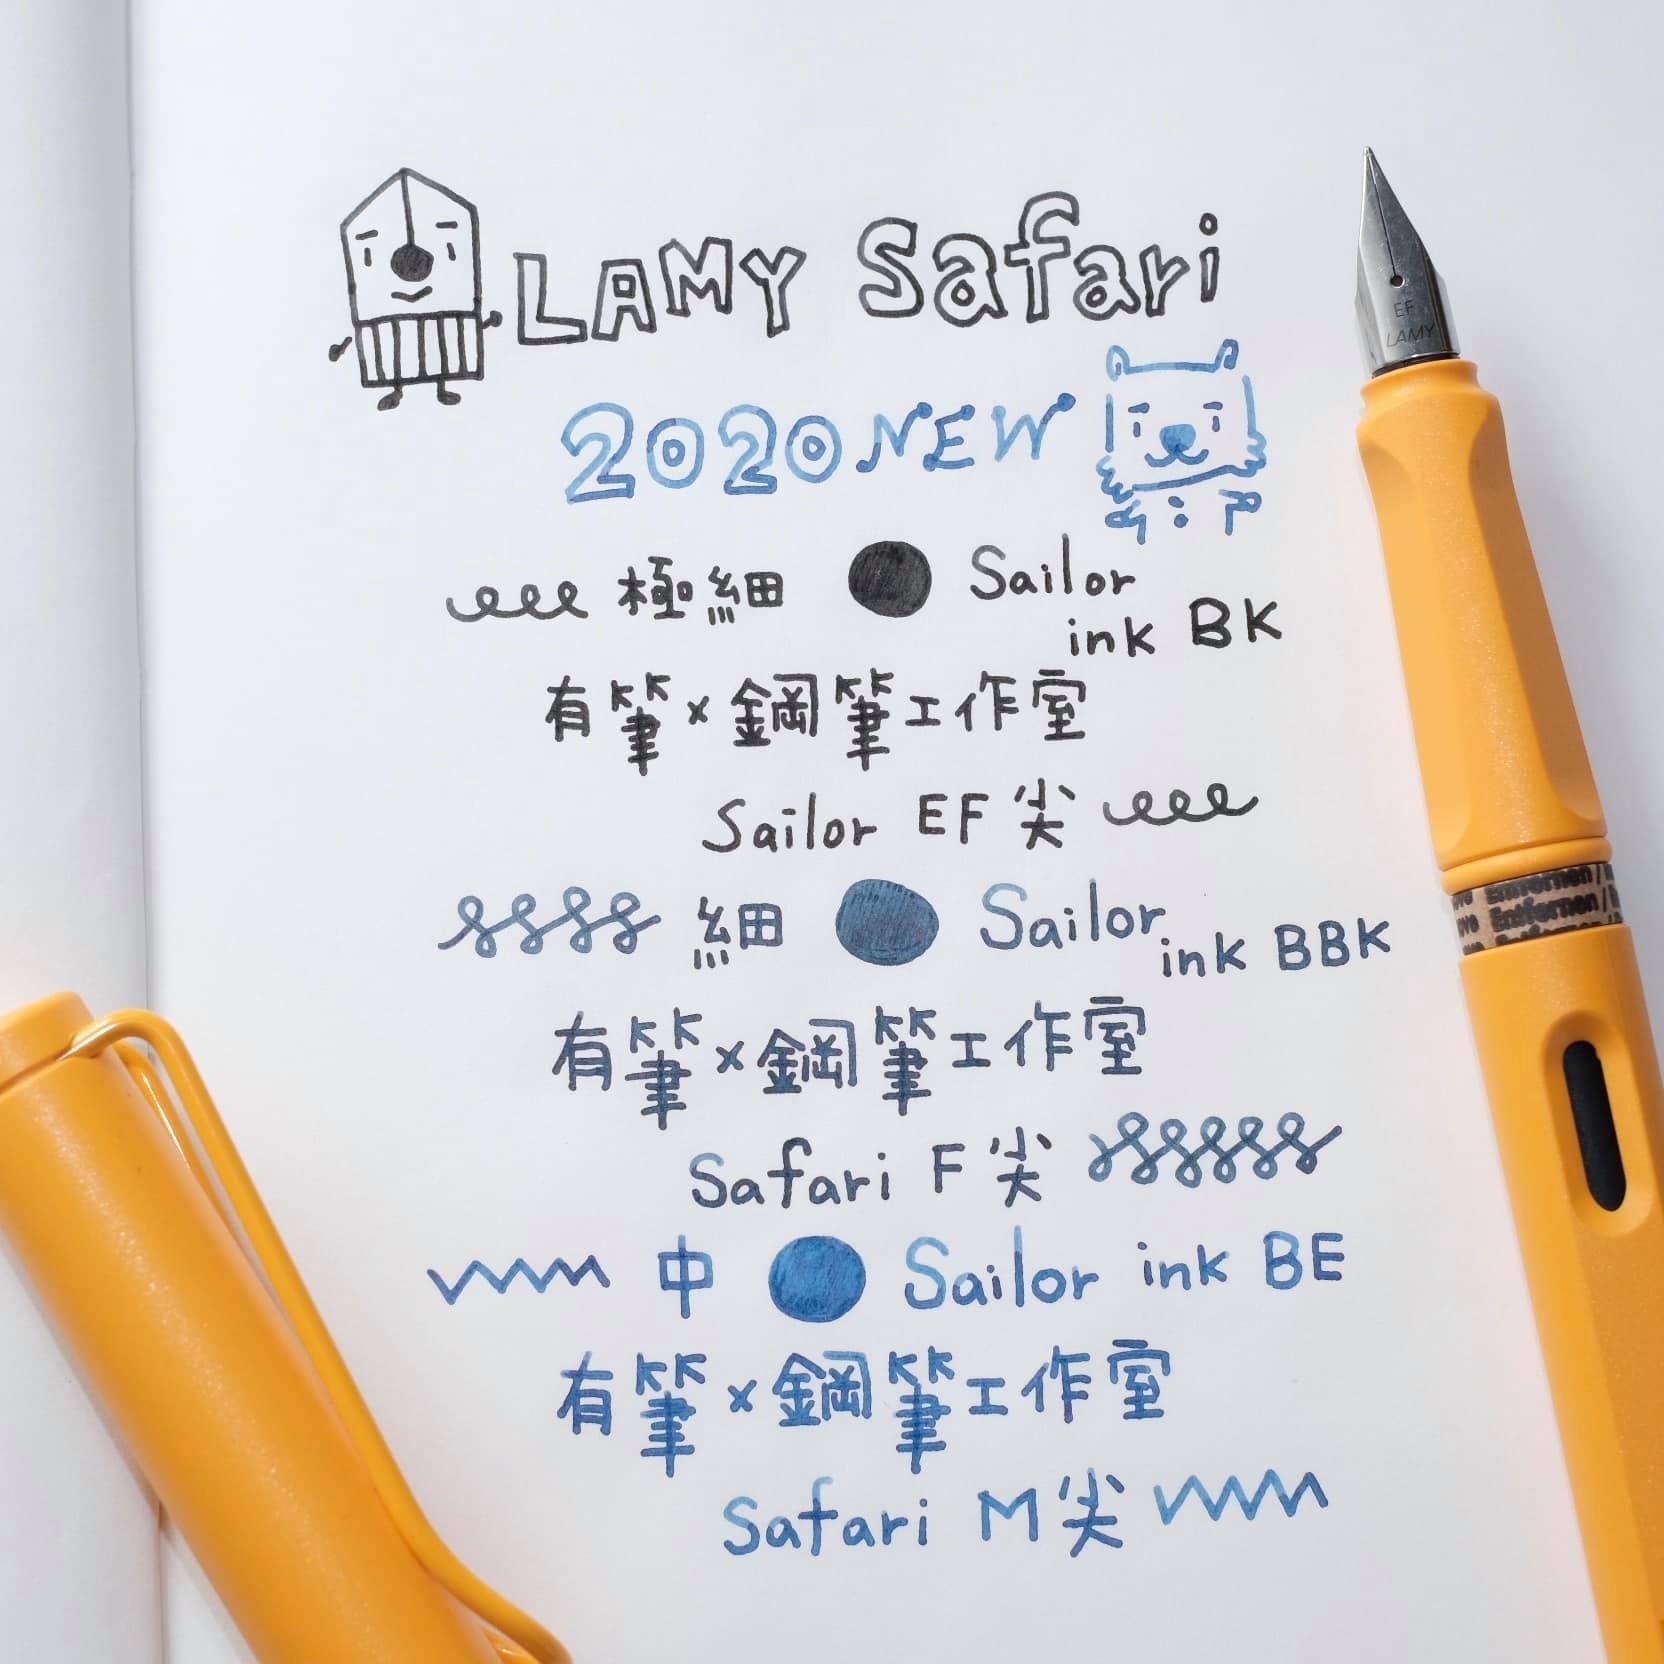 LAMY Safari
2020 NEW
極細 Sailor
ink BK
有筆×鋼筆工作室
Sailor EF 尖
細 Sailor
ink BBK
有筆×鋼筆工作室
Safari F 尖
中 Sailor ink BE
有筆×鋼筆工作室
Safari M 尖
EF
LAMY
Entfernen /
Entfernen /